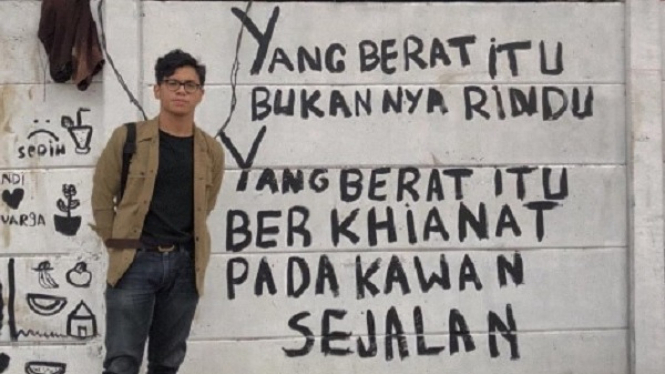 YANG BERAT ITU
BUKANNYA RINDU
YANG BERAT ITU
BERKHIANAT
PADA KAWAN
SEJALAN
SEDIH
VARGA